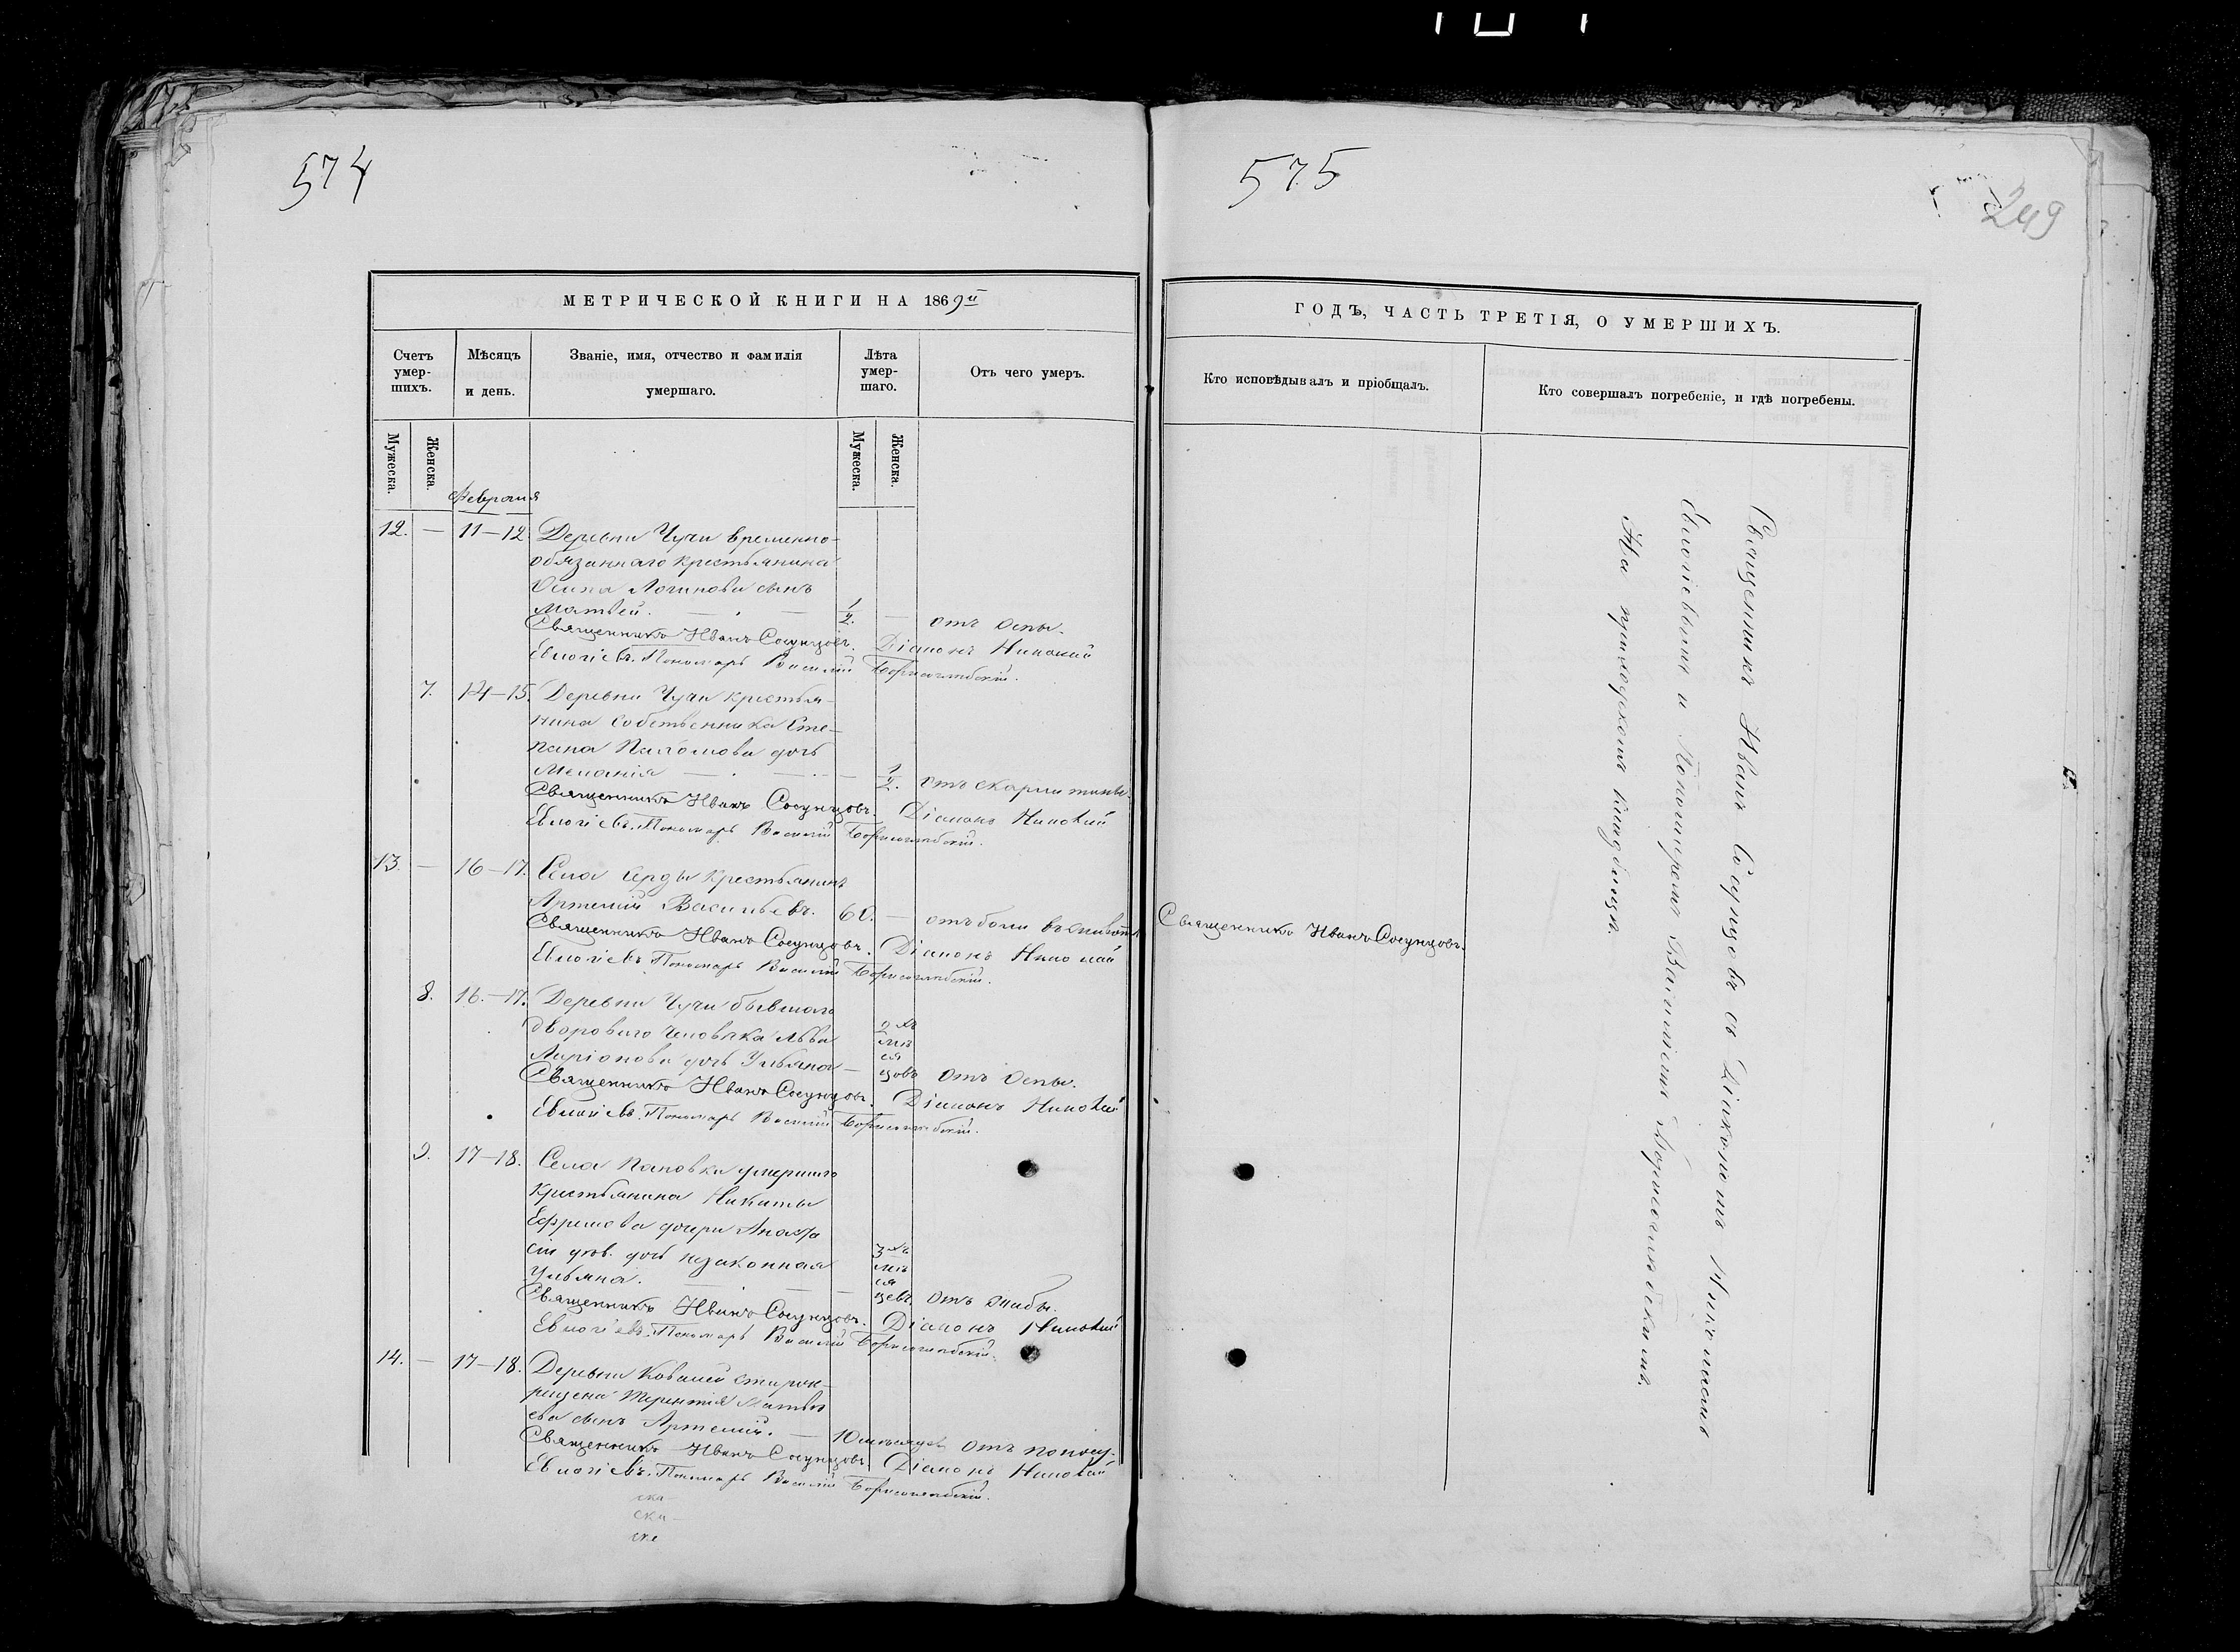 574
МЕТРИЧЕСКОЙ КНИГИ НА 1869й
Счетъ умершихъ.
Мѣсяцъ и день.
Званіе, имя, отчество и фамилія умершаго.
Лѣта умершаго.
Отъ чего умеръ.
Мужеска.
Женска.
Мужеска.
Женска.
Февраля
12. — 11—12. Деревни Чучи временно-
обязаннаго крестьянина
Осипа Логинова сынъ
Матвей. — 1/2. — отъ оспы.
Священникъ Иванъ Сосунцовъ. Діаконъ Николай
Евлогіевъ. Пономарь Василій Борисоглѣбскій.
7. 14—15. Деревни Чучи крестья-
нина собственника Сте-
пана дочь
Меланія — 1/2. отъ скарлатины.
Священникъ Иванъ Сосунцовъ. Діаконъ Николай
Евлогіевъ. Пономарь Василій Борисоглѣбскій.
13. — 16—17. Села крестьянинъ
Артемій Васильевъ. 60. — отъ боли въ животѣ
Священникъ Иванъ Сосунцовъ. Діаконъ Николай
Евлогіевъ. Пономарь Василій Борисоглѣбскій.
8. 16.—17. Деревни Чучи бывшаго
двороваго человѣка Льва
Ларіонова дочь Ульяна — мѣсяцовъ отъ оспы.
Священникъ Иванъ Сосунцовъ. Діаконъ Николай
Евлогіевъ. Пономарь Василій Борисоглѣбскій.
9. 17—18. Села Пановки умершаго
крестьянина Никиты
Ефремова дочери Анаста
сіи дѣв. дочь незаконная
Ульяна. — 3хъ мѣсяцевъ. отъ
Священникъ Иванъ Сосунцовъ. Діаконъ Николай
Евлогіевъ. Пономарь Василій Борисоглѣбскій.
14. — 17—18. Деревни Ковалей старок-
рещена Терентія Матвѣ
ева сынъ Артемій. — 10 мѣсяцев отъ поносу.
Священникъ Иванъ Сосунцовъ. Діаконъ Николай
Евлогіевъ. Пономарь Василій Борисоглѣбскій.
ска—
ска—
ске
575
249
ГОДЪ, ЧАСТЬ ТРЕТІЯ, О УМЕРШИХЪ.
Кто исповѣдывалъ и пріобщалъ.
Кто совершалъ погребеніе, и гдѣ погребены.
Священникъ Иванъ Сосунцовъ.
Священникъ Иванъ Сосунцовъ съ Діакономъ Николаемъ
Евлогіевымъ и Пономаремъ Василіемъ Борисоглѣбскимъ.
На приходскомъ кладбищѣ.